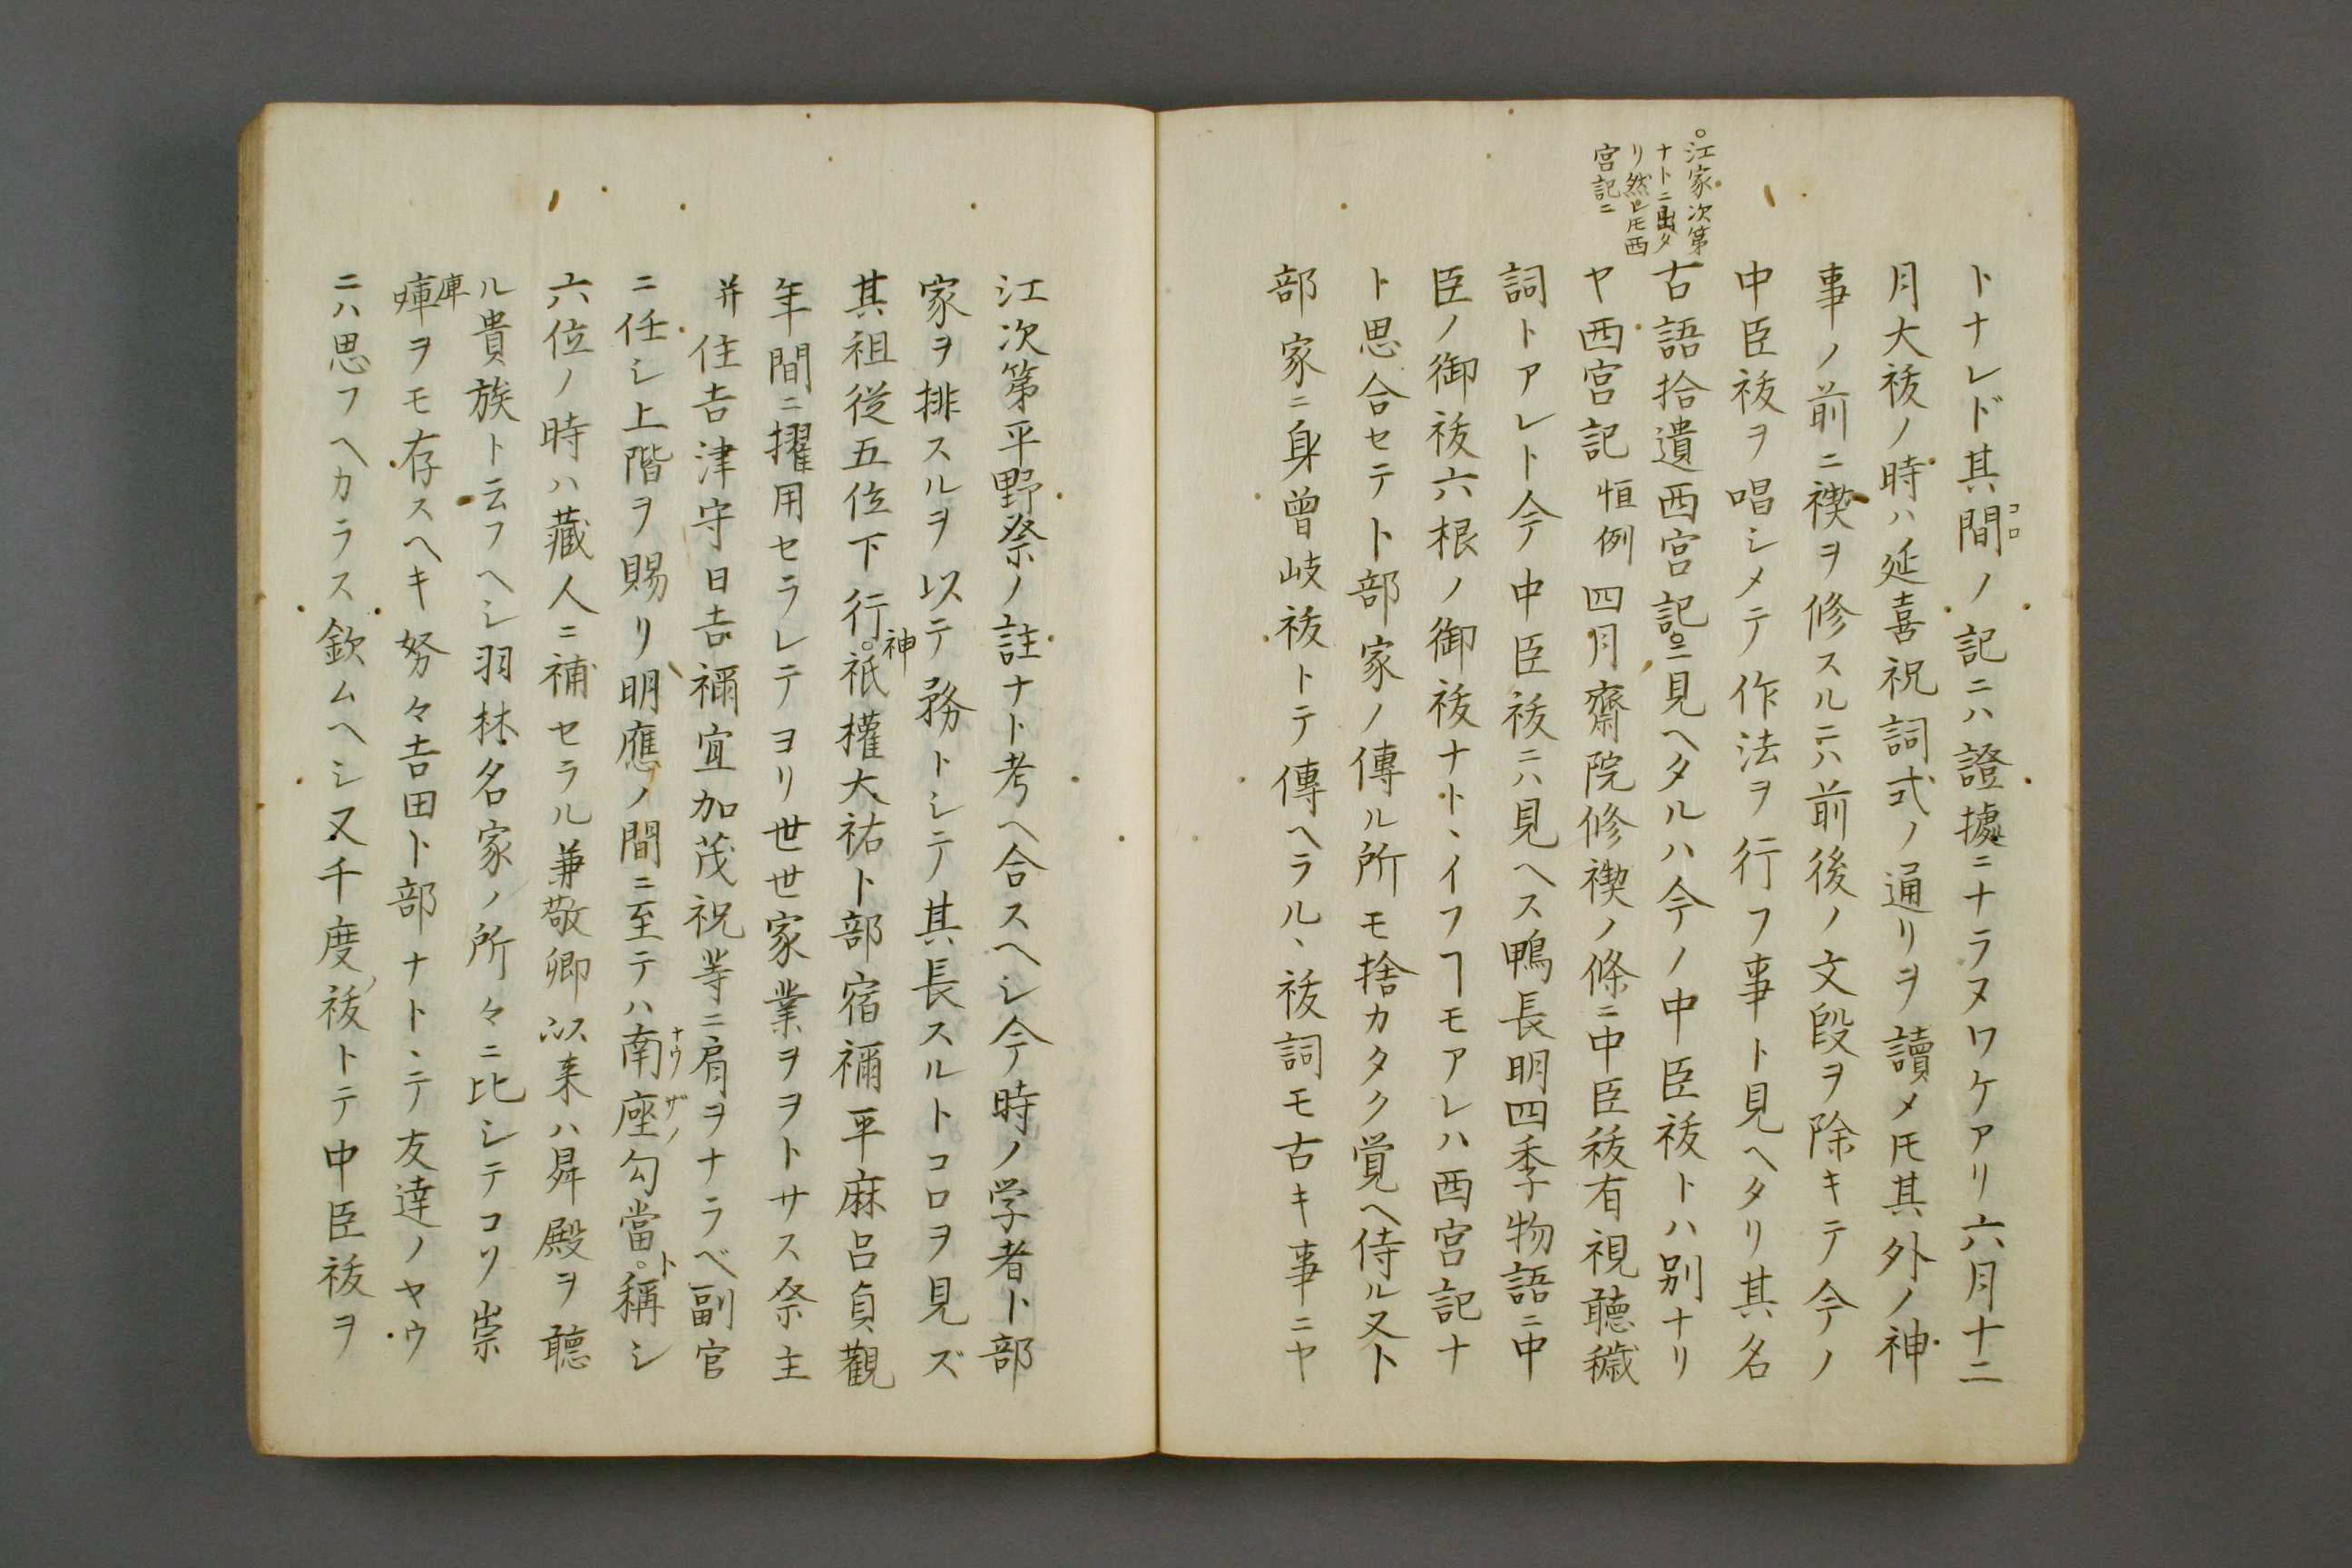 トナレド其間ノ記ニハ證據ニナラヌワケアリ六月十二
コロ
月大祓ノ時ハ延喜祝詞式ノ通リヲ讀メ𪜈其外ノ神
事ノ前ニ禊ヲ修スルニハ前後ノ文段ヲ除キテ今ノ
中臣祓ヲ唱シメテ作法ヲ行フ事ト見ヘタリ其名
。江家次第
ナトニ出タ
リ然レ𪜈西
宮記ニ
古語拾遺西宮記。ニ見ヘタルハ今ノ中臣祓トハ別ナリ
ヤ西宮記恒例四月齋院修禊ノ條ニ中臣祓有視聽穢
詞トアレト今中臣祓ニハ見ヘス鴨長明四季物語ニ中
臣ノ御祓六根ノ御祓ナトヽイフヿモアレハ西宮記ナ
ト思合セテ卜部家ノ傳ル所モ捨カタク覚ヘ侍ル又卜
部家ニ身曾岐祓トテ傳ヘラルヽ祓詞モ古キ事ニヤ
江次第平野祭ノ註ナト考ヘ合スヘシ今時ノ学者卜部
家ヲ排スルヲ以テ務トシテ其長スルトコロヲ見ズ
其祖從五位下行。祇權大祐卜部宿禰平麻呂貞觀
神
年間ニ擢用セラレテヨリ世世家業ヲヲトサス祭主
并住吉津守日吉禰宜加茂祝等ニ肩ヲナラベ副官
ニ任シ上階ヲ賜リ明應ノ間ニ至テハ南座勾當。稱シ
ナウ ザノ ト
六位ノ時ハ藏人ニ補セラル兼敬卿以来ハ昇殿ヲ聽
ル貴族ト云フヘシ羽林名家ノ所々ニ比シテコリ崇
庫ヲモ存スヘキ努々吉田卜部ナトヽテ友達ノヤウ
庫
ニハ思フヘカラス欽ムヘシ又千度祓トテ中臣祓ヲ